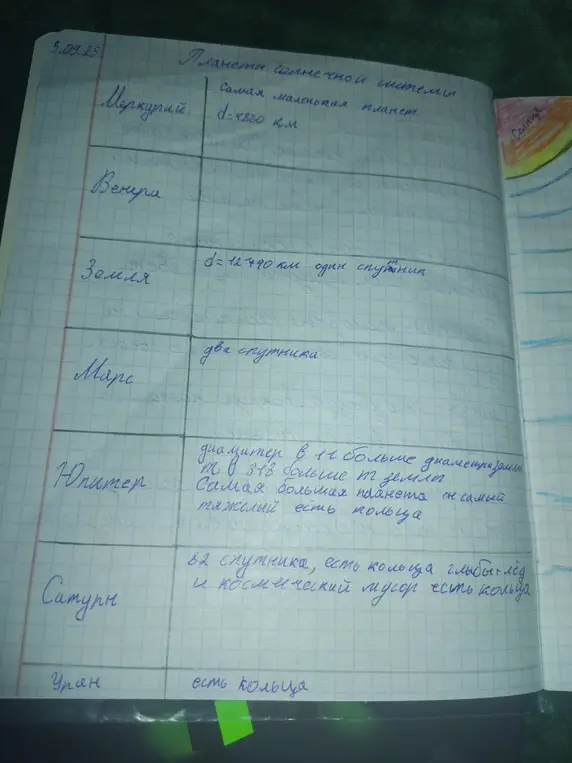 5.09.25
Планеты солнечной системы
Солнце
Меркурий
самая маленькая планет
d=4880 км
Венера
Земля
d=12 790 км один спутник
Марс
два спутника
Юпитер
диамитер в 11 больше диаметра земли
m в 318 больше m земли
самая большая планета и самый
тяжелий есть кольца
Сатурн
82 спутника, есть кольца глыбы-лёд
и космический мусор есть кольца
Уран
есть кольца